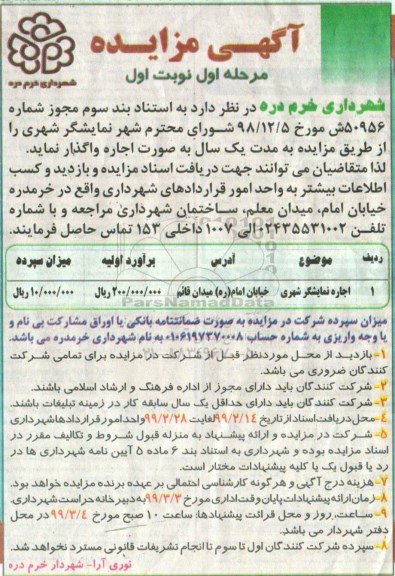 آگهی مزایده
مرحله اول نوبت اول
شهرداری خرم دره
شهرداری خرم دره در نظر دارد به استناد بند سوم مجوز شماره
۵۰۹۵۶ش مورخ ۹۸/۱۲/۵ شورای محترم شهر نمایشگر شهری را
از طریق مزایده به مدت یک سال به صورت اجاره واگذار نماید.
لذا متقاضیان می توانند جهت دریافت اسناد مزایده و بازدید و کسب
اطلاعات بیشتر به واحد امور قراردادهای شهرداری واقع در خرمدره
خیابان امام، میدان معلم، ساختمان شهرداری مراجعه و با شماره
تلفن ۰۲۴۳۵۵۳۱۰۰۲ الی ۱۰۰۷ داخلی ۱۵۳ تماس حاصل فرمایند.
ردیف موضوع آدرس برآورد اولیه میزان سپرده
۱ اجاره نمایشگر شهری خیابان امام(ره) میدان قائم ۲۰۰/۰۰۰/۰۰۰ ریال ۱۰/۰۰۰/۰۰۰ ریال
ParsNamadData
میزان سپرده شرکت در مزایده به صورت ضمانتنامه بانکی یا اوراق مشارکت بی نام و
یا وجه واریزی به شماره حساب ۰۱۰۶۱۹۷۳۷۰۰۰۸ به نام شهرداری خرمدره می باشد.
۱- بازدید از محل موردنظر قبل از شرکت در مزایده برای تمامی شرکت
کنندگان ضروری می باشد.
۲- شرکت کنندگان باید دارای مجوز از اداره فرهنگ و ارشاد اسلامی باشند.
۳- شرکت کنندگان باید دارای حداقل یک سال سابقه کار در زمینه تبلیغات باشند.
۴- محل دریافت اسناد از تاریخ ۹۹/۲/۱۴ لغایت ۹۹/۲/۲۸ واحد امور قراردادها شهرداری
۵- شرکت در مزایده و ارائه پیشنهاد به منزله قبول شروط و تکالیف مقرر در
اسناد مزایده بوده و شهرداری به استناد بند ۶ ماده ۵ آیین نامه شهرداری ها در
رد یا قبول یک یا کلیه پیشنهادات مختار است.
۷- هزینه درج آگهی و هرگونه کارشناسی احتمالی بر عهده برنده مزایده خواهد بود.
۸- زمان ارائه پیشنهادات پایان وقت اداری مورخ ۹۹/۳/۳ به دبیرخانه حراست شهرداری.
۹- ساعت، روز و محل قرائت پیشنهادها: ساعت ۱۰ صبح مورخ ۹۹/۳/۴ در محل
دفتر شهردار می باشد.
۸- سپرده شرکت کنندگان اول تا سوم تا انجام تشریفات قانونی مسترد نخواهد شد.
نوری آرا- شهردار خرم دره